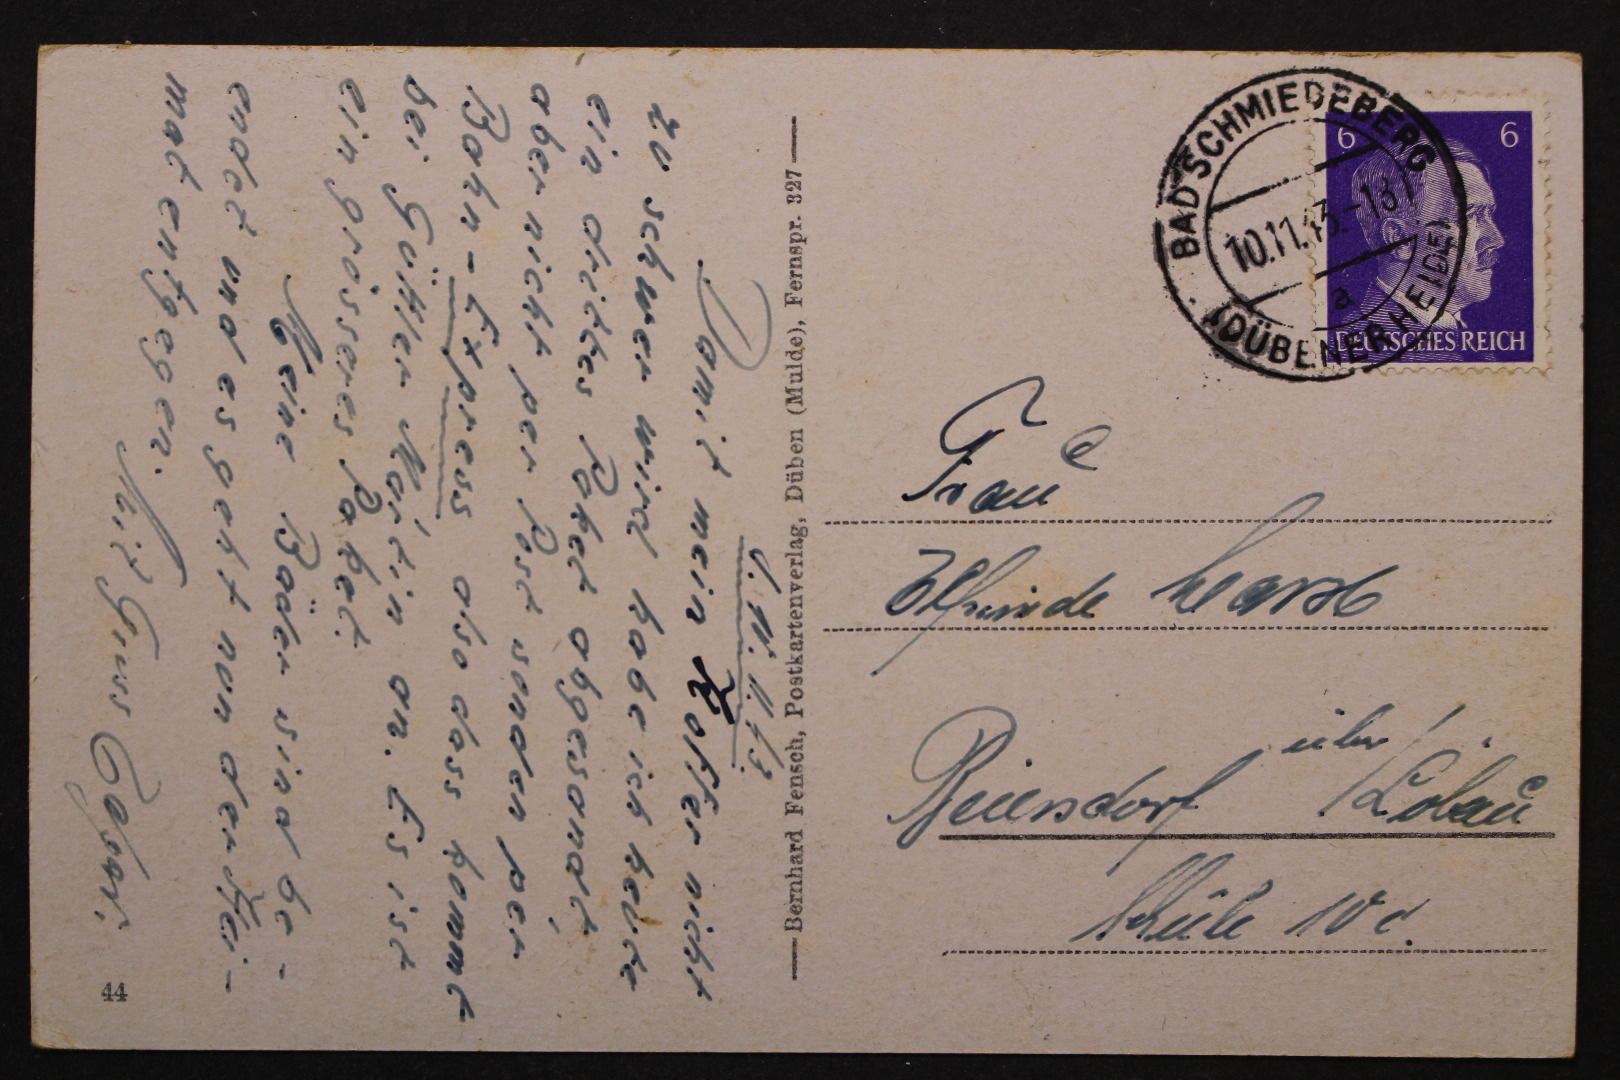 d. 10.11.43.
Damit mein Koffer nicht
zu schwer wird habe ich heute
ein drittes Paket abgesandt,
aber nicht per Post sonden per
Bahn-Express also dass kommt
bei Güttler Märtin an. Es ist
ein grösseres Paket
Meine Bäder sind be-
endet und es geht nun der Hei-
mat entgegen.
Mit Gruss Casar.
44
Bernhard Fensch, Postkartenverlag, Düben (Mulde), Fernspr. 327
BAD SCHMIEDEBERG
10.11.43.-13
a
(DÜBENER HEIDE)
6 6
DEUTSCHES REICH
Frau
Elfriede
Beiersdorf über/Löbau